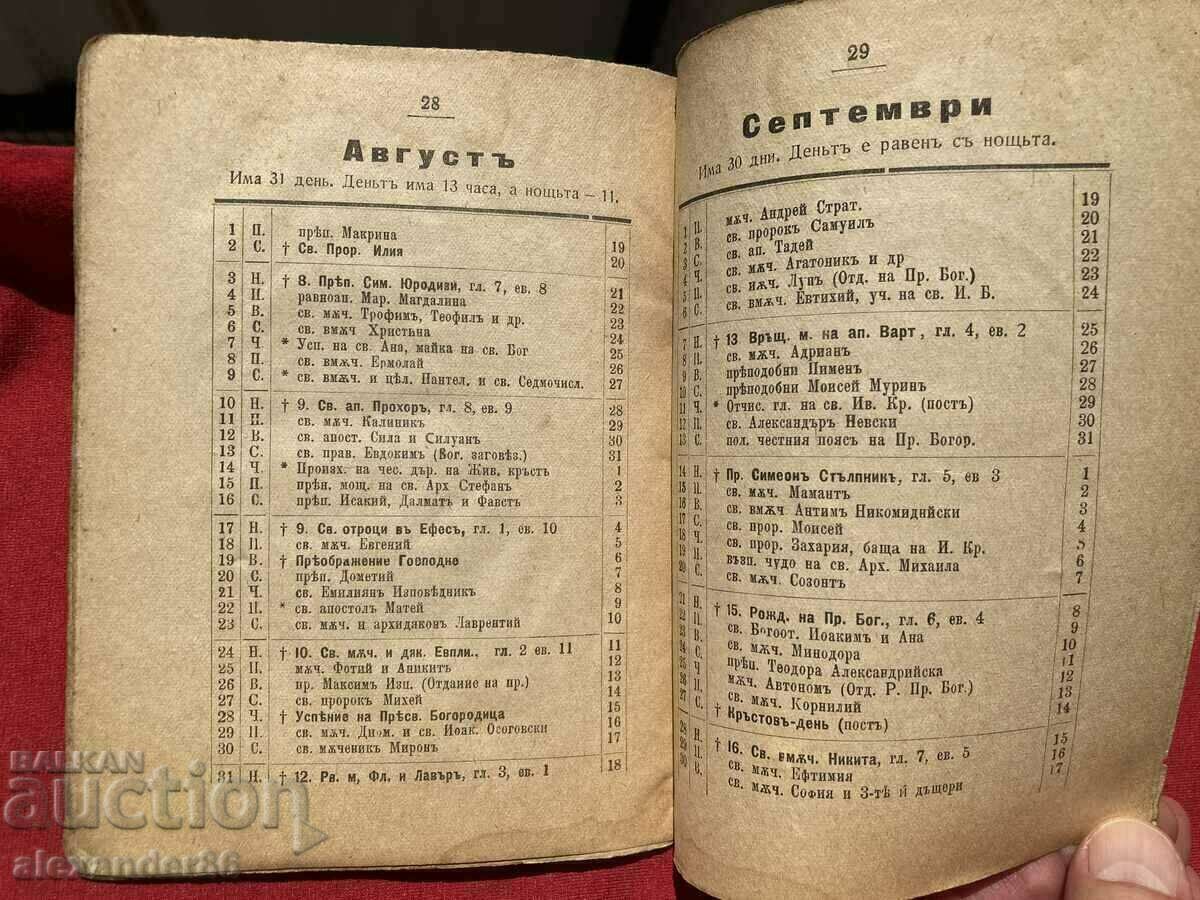 28
Августъ
Има 31 день. Деньтъ има 13 часа, а нощьта – 11.
1 П. прѣп. Макрина 19
2 С. † Св. Прор. Илия 20
3 Н. † 8. Прѣп. Сим. Юродиви, гл. 7, ев. 8 21
4 П. равноап. Мар. Магдалина 22
5 В. св. мѫч. Трофим, Теофилъ и др. 23
6 С. св. вмѫч Христьна 24
7 Ч * Усп. на св. Ана, майка на св. Бог 25
8 П. св. вмѫч. Ермолай 26
9 С. * св. вмѫч. и цѣл. Пантел. и св. Седмочисл. 27
10 Н. † 9. Св. ап. Прохоръ, гл. 8, ев. 9 28
11 П. св. мѫч. Калиникъ 29
12 В. св. апост. Сила и Силуанъ 30
13 С. св. прав. Евдокимъ (Бог. заговѣз.) 31
14 Ч. * Произх. на чес. дър. на Жив. кръстъ 1
15 П. прѣн. мощ. на св. Арх Стефанъ 2
16 С. прѣп. Исакий, Далматъ и Фавстъ 3
17 Н. † 9. Св. отроци въ Ефесъ, гл. 1, ев. 10 4
18 П. св. мѫч. Евгений 5
19 В. † Прѣображение Господне 6
20 С. прѣп. Дометий 7
21 Ч. св. Емилиянъ Изповѣдникъ 8
22 П. * св. апостолъ Матей 9
23 С. св. мѫч. и архидяконъ Лаврентий 10
24 Н. † 10. Св. мѫч. и дяк. Евпли., гл. 2 ев. 11 11
25 П. мѫч. Фотий и Аникитъ 12
26 В. пр. Максимъ Изп. (Отдание на пр.) 13
27 С. св. пророкъ Михей 14
28 Ч. † Успѣние на Прѣсв. Богородица 15
29 П. св. мѫч. Диом. и св. Иоак. Осоговски 16
30 С. св. мѫченикъ Миронъ 17
31 Н. † 12. Рв. м, Фл. и Лавъръ, гл. 3, ев. 1 18
29
Септември
Има 30 дни. Деньтъ е равенъ съ нощьта.
1 П. мѫч. Андрей Страт. 19
2 В. св. пророкъ Самуилъ 20
3 С. св. ап. Тадей 21
4 Ч. св. мѫч. Агатоникъ и др 22
5 П. св. мѫч. Лупъ (Отд. на Пр. Бог.) 23
6 С. св. вмѫч. Евтихий, уч. на св. И. Б. 24
7 Н. † 13 Връщ. м. на ап. Варт, гл. 4, ев. 2 25
8 П. св. мѫч. Адрианъ 26
9 В. прѣподобни Пименъ 27
10 С. прѣподобни Моисей Муринъ 28
11 Ч. * Отчис. гл. на св. Ив. Кр. (постъ) 29
12 П. св. Александъръ Невски 30
13 С. пол. честния поясъ на Пр. Богор. 31
14 Н. † Пр. Симеонъ Стълпникъ, гл. 5, ев 3 1
15 П. св. мѫч. Мамантъ 2
16 В. св. вмѫч Антим Никомидийски 3
17 С. св. прор. Моисей 4
18 Ч. св. прор. Захария, баща на И. Кр. 5
19 П. възп. чудо на св. Арх. Михаила 6
20 С. св. мѫч. Созонтъ 7
21 Н. † 15. Рожд. на Пр. Бог., гл. 6, ев. 4 8
22 П. св. Богоот. Иоакимъ и Ана 9
23 В. св. мѫч. Минодора 10
24 С. прѣп. Теодора Александрийска 11
25 Ч мѫч. Автономъ (Отд. Р. Пр. Бог.) 12
26 П. св. мѫч. Корнилий 13
27 С. † Кръстовъ-день (постъ) 14
28 Н. † 16. Св. вмѫч. Никита, гл. 7, ев. 5 15
29 П. св. мѫч. Ефтимия 16
30 В. св. мѫч. София и 3-тѣ ѝ дъщери 17
BALKAN
auction
alexander86